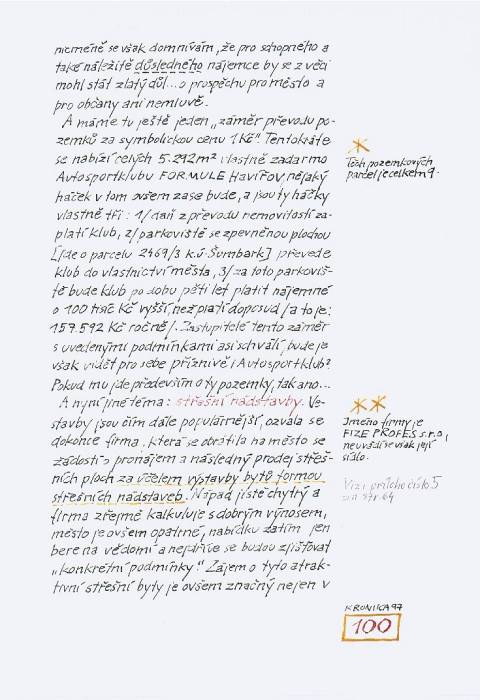 nicméně se však domnívám, že pro schopného a
také náležitě důsledného nájemce by se z věci
mohl stát zlatý důl... o prospěchu pro město a
pro občany ani nemluvě.
A máme tu ještě jeden „záměr převodu po-
zemků za symbolickou cenu 1 Kč". Tentokráte
se nabízí celých 5.212 m² vlastně zadarmo
Autosportklubu FORMULE Havířov, nějaký
háček v tom ovšem zase bude, a jsou ty háčky
vlastně tři: 1/ daň z převodu nemovitostí za-
platí klub, 2/ parkoviště se zpevněnou plochou
[jde o parcelu 2469/3 k.ú. Šumbark] převede
klub do vlastnictví města, 3/ za toto parkoviš-
tě bude klub po dobu pěti let platit nájemné
o 100 tisíc Kč vyšší, než platí doposud /a to je:
157.592 Kč ročně/. Zastupitelé tento záměr
s uvedenými podmínkami asi schválí, bude je
však vidět pro sebe příznivě i Autosportklub?
Pokud mu jde především o ty pozemky, tak ano...
A nyní jiné téma: střešní nádstavby. Ve-
stavby jsou čím dále populárnější, ozvala se
dokonce firma, která se obrátila na město se
žádostí o pronájem a následný prodej střeš-
ních ploch za účelem výstavby bytů formou
střešních nádstaveb. Nápad jistě chytrý a
firma zřejmě kalkuluje s dobrým výnosem,
město je ovšem opatrné, nabídku zatím jen
bere na vědomí a nejdříve se budou zjišťovat
„konkrétní podmínky". Zájem o tyto atrak-
tivní střešní byty je ovšem značný nejen v
*
Těch pozemkových
parcel je celkem 9.
**
Jméno firmy je
FIZE PROFES s.r.o,
neuvádí se však její
sídlo.
Viz i příloha číslo 5
na str. 64
KRONIKA 97
100